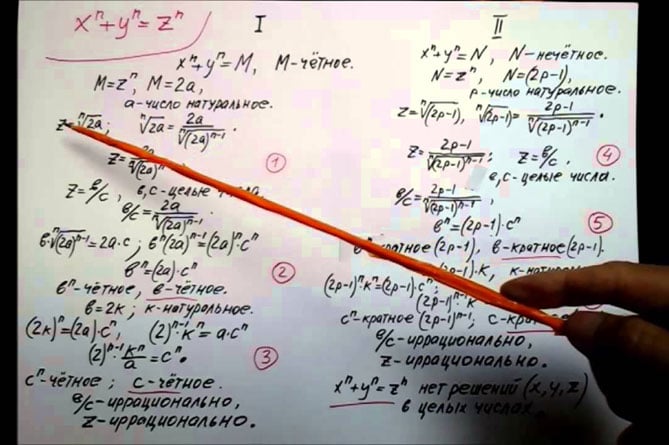 xⁿ+yⁿ=zⁿ
I
xⁿ+yⁿ=M, M-чётное.
M=zⁿ, M=2a,
a-число натуральное.
z=ⁿ√2a; ⁿ√2a = 2a/ⁿ√(2a)ⁿ⁻¹.
z=
①
z=в/с, в,с-целые
в/с = 2a/ⁿ√(2a)ⁿ⁻¹
в·ⁿ√(2a)ⁿ⁻¹=2a·c; вⁿ(2a)ⁿ⁻¹=(2a)ⁿ·cⁿ
вⁿ=(2a)·cⁿ
②
вⁿ-чётное, в-чётное.
в=2k; k-натуральное.
(2k)ⁿ=(2a)·cⁿ, (2)ⁿ⁻¹·kⁿ=a·cⁿ
(2)ⁿ⁻¹·kⁿ/a=cⁿ.
③
cⁿ-чётное; с-чётное.
в/с-иррационально,
z-иррационально.
II
xⁿ+yⁿ=N, N-нечётное.
N=zⁿ, N=(2p-1),
p-число натуральное.
z=ⁿ√(2p-1), ⁿ√(2p-1)= 2p-1/ⁿ√(2p-1)ⁿ⁻¹.
z= 2p-1/ⁿ√(2p-1)ⁿ⁻¹; z=в/с.
④
в,с-целые числа.
в/с= 2p-1/ⁿ√(2p-1)ⁿ⁻¹,
вⁿ=(2p-1)·cⁿ
⑤
кратное (2p-1), в-кратное (2p-1).
·k, k-
(2p-1)ⁿ·kⁿ=(2p-1)·cⁿ;
(2p-1)ⁿ⁻¹·k
cⁿ-кратное (2p-1)ⁿ⁻¹;
в/с-иррационально,
z-иррационально.
xⁿ+yⁿ=zⁿ нет решений (x,y,z)
в целых числах.